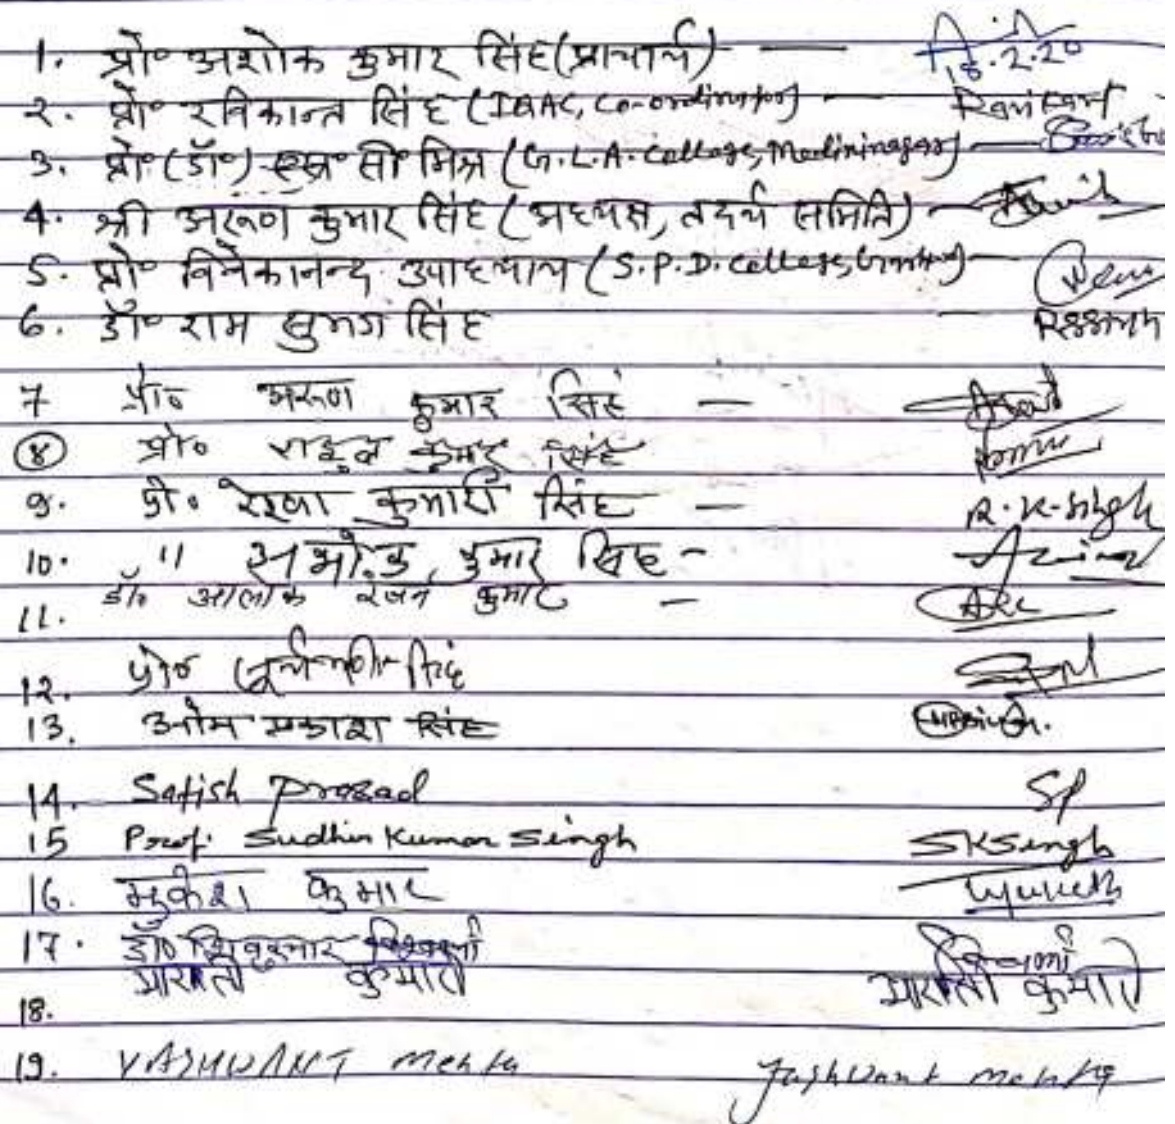 1. प्रो० अशोक कुमार सिंह (प्राचार्य) — 18.2.20
2. प्रो० रविकान्त सिंह (IQAC, Co-ordinator) — Ravikant
3. प्रो. (डॉ०) एस० सी० मिश्र (G.L.A. College, Medininagar) —
4. श्री अरूण कुमार सिंह (अध्यक्ष, तदर्थ समिति) —
5. प्रो० विवेकानन्द उपाध्याय (S.P.D. College, —
6. डॉ० राम सुभग सिंह —
7 प्रो० अरूण कुमार सिंह —
8 प्रो० राहुल कुमार सिंह
9. प्रो. रेखा कुमारी सिंह — R.K. Singh
10. " कुमार सिंह -
11. डॉ० आलोक रंजन कुमार —
12. प्रो० सिंह
13. ओम प्रकाश सिंह
14. Satish Prasad SP
15 Prof. Sudhir Kumar Singh SKSingh
16. मुकेश कुमार
17. डॉ० शिवकुमार विश्वकर्मा
18. भारती कुमारी भारती कुमारी
19. YASHWANT Mehta Yashwant Mehta